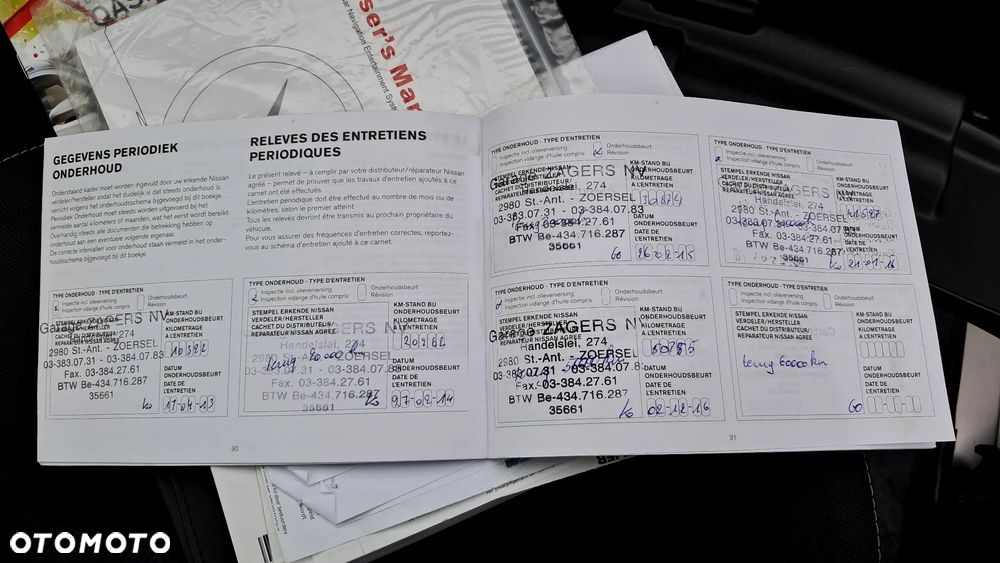 QASH
ser's Man
ar Navigation Entertainment Syste
GEGEVENS PERIODIEK
ONDERHOUD
Onderstaand kader moet worden ingevuld door uw erkende Nissan
verdeler/hersteller zodat duidelijk is dat steeds onderhoud is
verricht volgens het onderhoudsschema bijgevoegd bij dit boekje.
Periodiek Onderhoud moet steeds worden uitgevoerd bij het
vermelde aantal kilometers of maanden, wat het eerst wordt bereikt.
Overhandig steeds alle documenten die betrekking hebben op
onderhoud aan een eventuele volgende eigenaar.
De correcte intervallen voor onderhoud staan vermeld in het onder-
houdsschema bijgevoegd bij dit boekje.
RELEVES DES ENTRETIENS
PERIODIQUES
Le présent relevé – à remplir par votre distributeur/réparateur Nissan
agréé – permet de prouver que les travaux d'entretien ajoutés à ce
carnet ont été effectués.
L'entretien périodique doit être effectué au nombre de mois ou de
kilomètres, selon le premier atteint.
Tous les relevés devront être transmis au prochain propriétaire du
véhicule.
Pour vous assurer des fréquences d'entretien correctes, reportez-
vous au schéma d'entretien ajouté à ce carnet.
TYPE ONDERHOUD - TYPE D'ENTRETIEN
Inspectie incl. olieverversing
Inspection vidange d'huile compris
Onderhoudsbeurt
Révision
STEMPEL ERKENDE NISSAN
VERDELER/HERSTELLER
CACHET DU DISTRIBUTEUR/
REPARATEUR NISSAN AGREE
KM-STAND BIJ
ONDERHOUDSBEURT
KILOMETRAGE
A L'ENTRETIEN
Garage ZAGERS NV
Handelslei, 274
2980 St.-Ant. - ZOERSEL
03-383.07.31 - 03-384.07.83
Fax. 03-384.27.61
BTW Be-434.716.287
35661
DATUM
ONDERHOUDSBEURT
DATE DE
L'ENTRETIEN
17-04-13
TYPE ONDERHOUD - TYPE D'ENTRETIEN
Inspectie incl. olieverversing
Inspection vidange d'huile compris
Onderhoudsbeurt
Révision
STEMPEL ERKENDE NISSAN
VERDELER/HERSTELLER
CACHET DU DISTRIBUTEUR/
REPARATEUR NISSAN AGREE
KM-STAND BIJ
ONDERHOUDSBEURT
KILOMETRAGE
A L'ENTRETIEN
ZAGERS NV
Handelslei, 274
2980 St.-Ant. - ZOERSEL
03-383.07.31 - 03-384.07.83
Fax. 03-384.27.61
BTW Be-434.716.287
35661
DATUM
ONDERHOUDSBEURT
DATE DE
L'ENTRETIEN
30
TYPE ONDERHOUD - TYPE D'ENTRETIEN
Inspectie incl. olieverversing
Inspection vidange d'huile compris
Onderhoudsbeurt
Révision
STEMPEL ERKENDE NISSAN
VERDELER/HERSTELLER
CACHET DU DISTRIBUTEUR/
REPARATEUR NISSAN AGREE
KM-STAND BIJ
ONDERHOUDSBEURT
KILOMETRAGE
A L'ENTRETIEN
30874
Garage ZAGERS NV
Handelslei, 274
2980 St.-Ant. - ZOERSEL
03-383.07.31 - 03-384.07.83
Fax. 03-384.27.61
BTW Be-434.716.287
35661
DATUM
ONDERHOUDSBEURT
DATE DE
L'ENTRETIEN
26-02-15
TYPE ONDERHOUD - TYPE D'ENTRETIEN
Inspectie incl. olieverversing
Inspection vidange d'huile compris
Onderhoudsbeurt
Révision
KM-STAND BIJ
ONDERHOUDSBEURT
KILOMETRAGE
A L'ENTRETIEN
ZAGERS NV
Handelslei, 274
2980 St.-Ant. - ZOERSEL
Fax. 03-384.27.61
BTW Be-434.716.287
35661
DATUM
ONDERHOUDSBEURT
DATE DE
L'ENTRETIEN
21-01-16
TYPE ONDERHOUD - TYPE D'ENTRETIEN
Inspectie incl. olieverversing
Inspection vidange d'huile compris
Onderhoudsbeurt
Révision
STEMPEL ERKENDE NISSAN
VERDELER/HERSTELLER
CACHET DU DISTRIBUTEUR/
REPARATEUR NISSAN AGREE
KM-STAND BIJ
ONDERHOUDSBEURT
KILOMETRAGE
A L'ENTRETIEN
Garage ZAGERS NV
Handelslei, 274
2980 St.-Ant. - ZOERSEL
03-383.07.31 - 03-384.07.83
Fax. 03-384.27.61
BTW Be-434.716.287
35661
DATUM
ONDERHOUDSBEURT
DATE DE
L'ENTRETIEN
02-12-16
TYPE ONDERHOUD - TYPE D'ENTRETIEN
Inspectie incl. olieverversing
Inspection vidange d'huile compris
Onderhoudsbeurt
Révision
STEMPEL ERKENDE NISSAN
VERDELER/HERSTELLER
CACHET DU DISTRIBUTEUR/
REPARATEUR NISSAN AGREE
KM-STAND BIJ
ONDERHOUDSBEURT
KILOMETRAGE
A L'ENTRETIEN
terug 60000 km
DATUM
ONDERHOUDSBEURT
DATE DE
L'ENTRETIEN
31
OTOMOTO